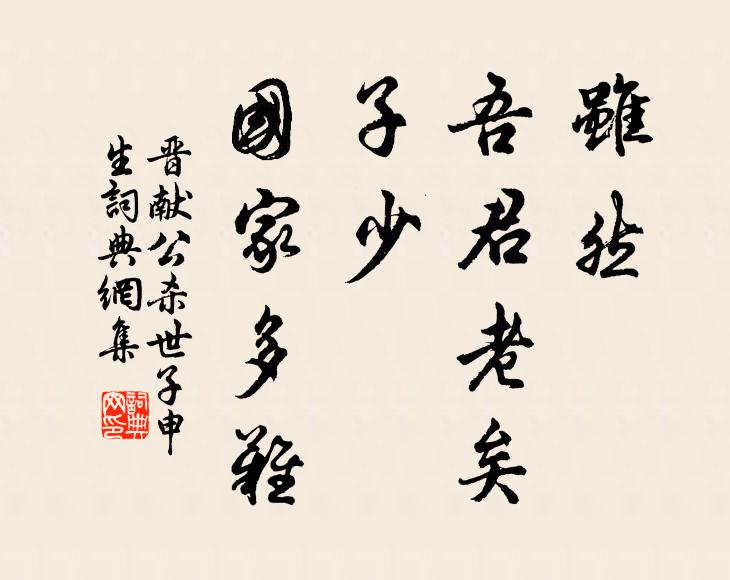 雖然
吾君老矣
子少
國家多難
晋献公杀世子申
生詞典網集
詞典
网印